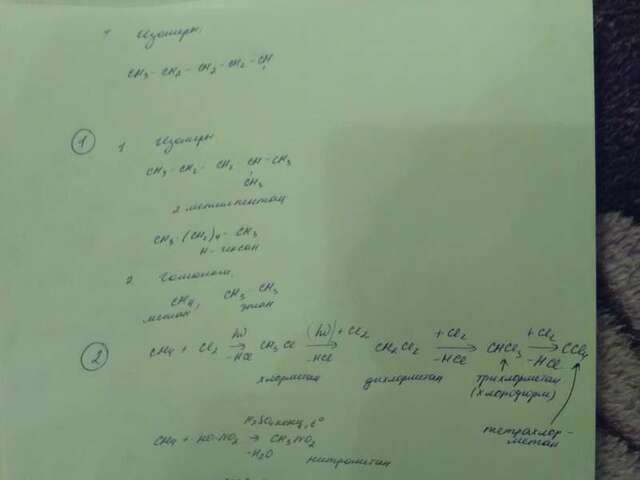 Изомеры:
CH3 - CH2 - CH2 - CH2 - CH
1
1 Изомеры
CH3 - CH2 - CH2 - CH - CH3
CH3
2 метилпентан
CH3 - (CH2)4 - CH3
Н - гексан
2 Гомологи
CH4, CH3 - CH3
метан этан
2
CH4 + Cl2 hν → -HCl CH3Cl (hν) + Cl2 → -HCl CH2Cl2 + Cl2 → -HCl CHCl3 + Cl2 → -HCl CCl4
хлорметан дихлорметан трихлорметан
(хлороформ)
тетрахлор-
метан
H2SO4 конц, t°
CH4 + HO-NO2 → CH3NO2
-H2O нитрометан